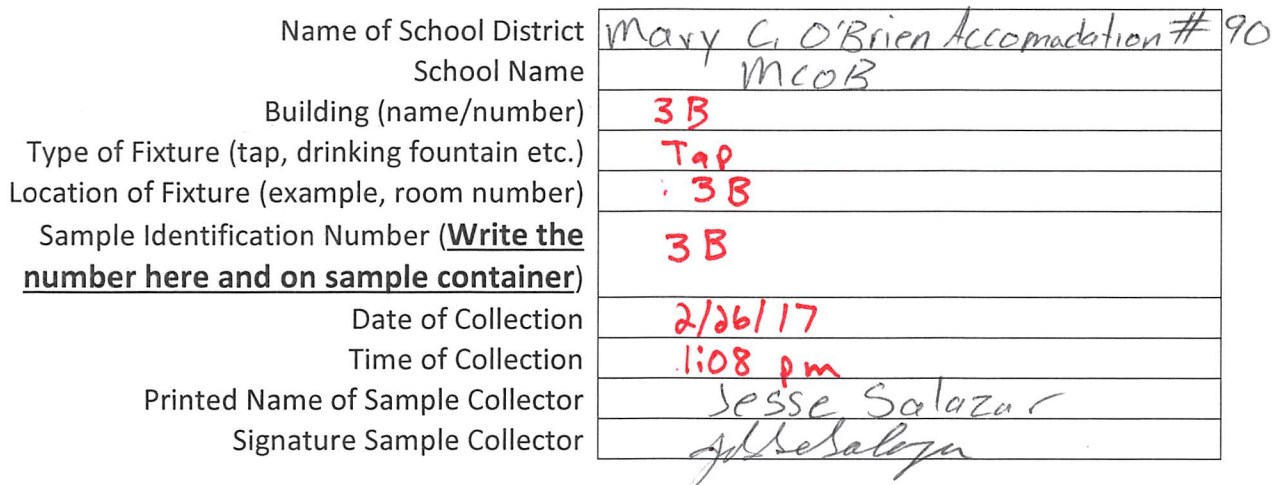 Name of School District Mary C. O'Brien Accomadation # 90
School Name MCOB
Building (name/number) 3B
Type of Fixture (tap, drinking fountain etc.) Tap
Location of Fixture (example, room number) 3B
Sample Identification Number (Write the
number here and on sample container) 3B
Date of Collection 2/26/17
Time of Collection 1:08 pm
Printed Name of Sample Collector Jesse Salazar
Signature Sample Collector Jesse Salazar